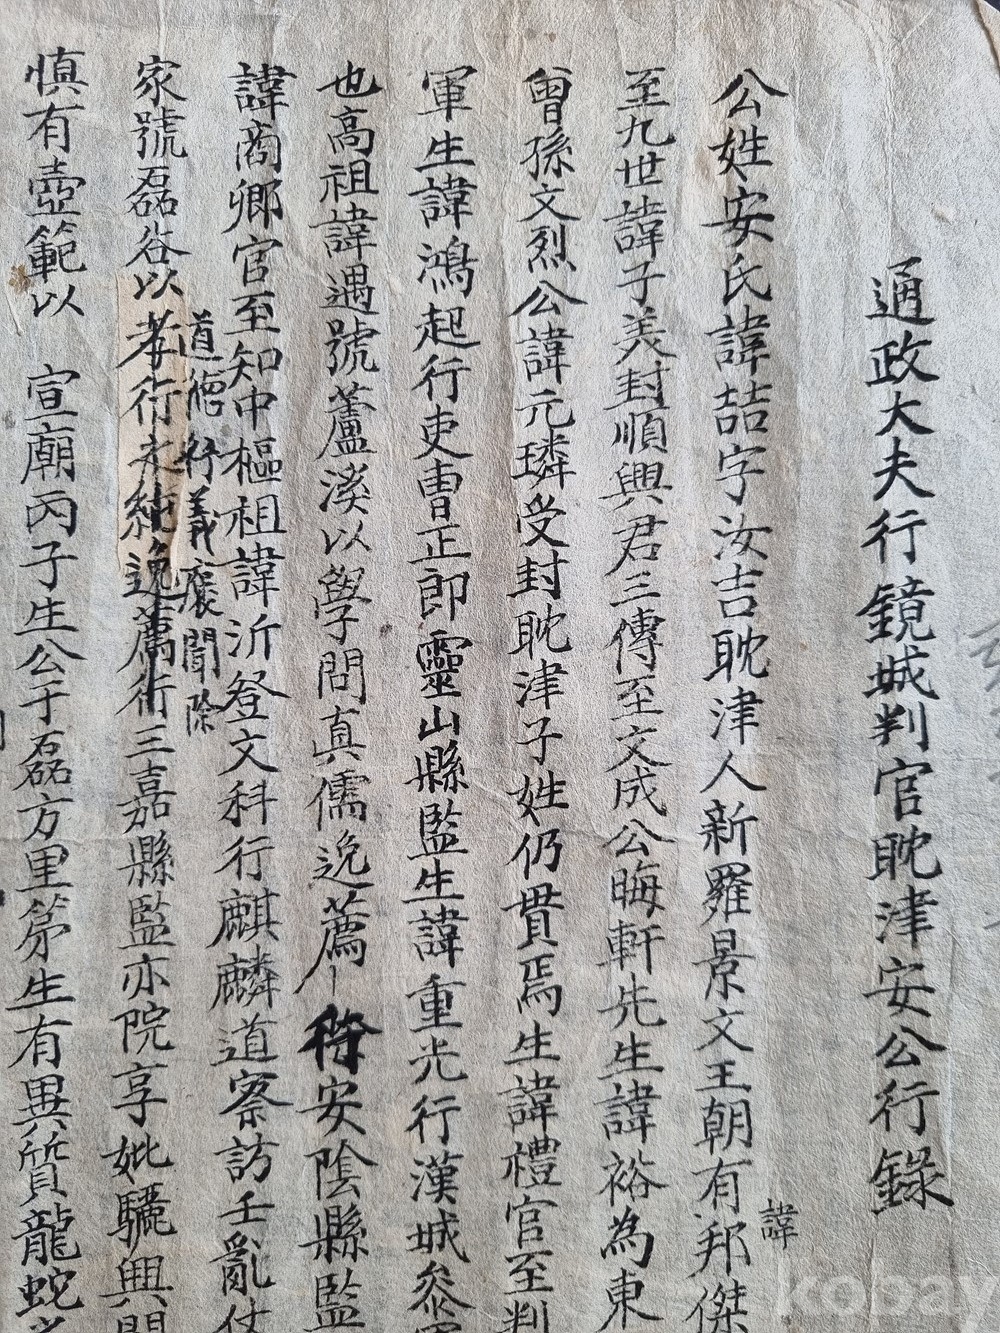 通政大夫行鏡城判官耽津安公行錄
公姓安氏諱喆字汝吉耽津人新羅景文王朝有諱邦傑
至九世諱子美封順興君三傳至文成公晦軒先生諱裕為東
曾孫文烈公諱元璘受封耽津子姓仍貫焉生諱禮官至判
軍生諱鴻起行吏曹正郎靈山縣監生諱重光行漢城參軍
也高祖諱遇號蘆溪以學問真儒逸薦 安陰縣監
諱商卿官至知中樞祖諱沂登文科行麒麟道察訪壬亂仗
道德行義褒聞除
家號磊谷以孝 逸薦 三嘉縣監亦院享妣驪興閔
慎有壼範以 宣廟丙子生公于磊方里第生有異質龍蛇
kobay